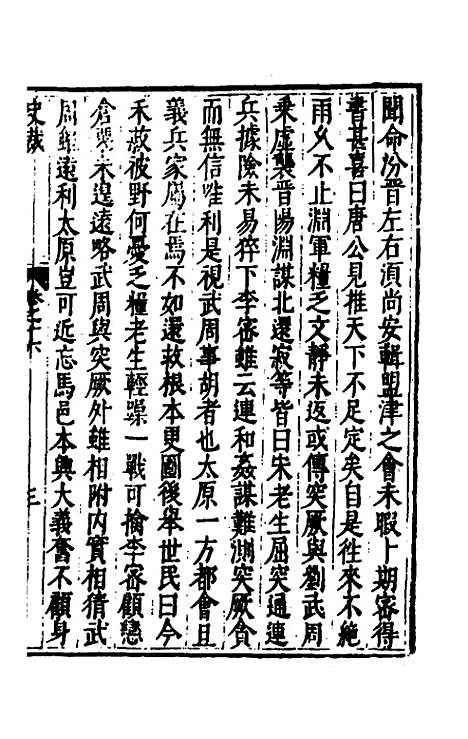 聞命汾晉左右湏尚安輯盟津之會未暇卜期密得
書甚喜曰唐公見推天下不足定矣自是徃來不絶
雨久不止淵軍糧乏文靜未返或傳突厥與劉武周
乗虛襲晉陽淵謀北還寂等皆曰宋老生屈突通連
兵據險未易猝下李密雖云連和姦謀難測突厥貪
而無信唯利是視武周事胡者也太原一方都會且
義兵家屬在焉不如還救根本更圖後舉世民曰今
禾菽被野何憂乏糧老生輕躁一戰可擒李密顧戀
倉粟未遑遠略武周與突厥外雖相附内實相猜武
周雖遠利太原豈可近忘馬邑本興大義奮不顧身
史裁
卷之十六
三